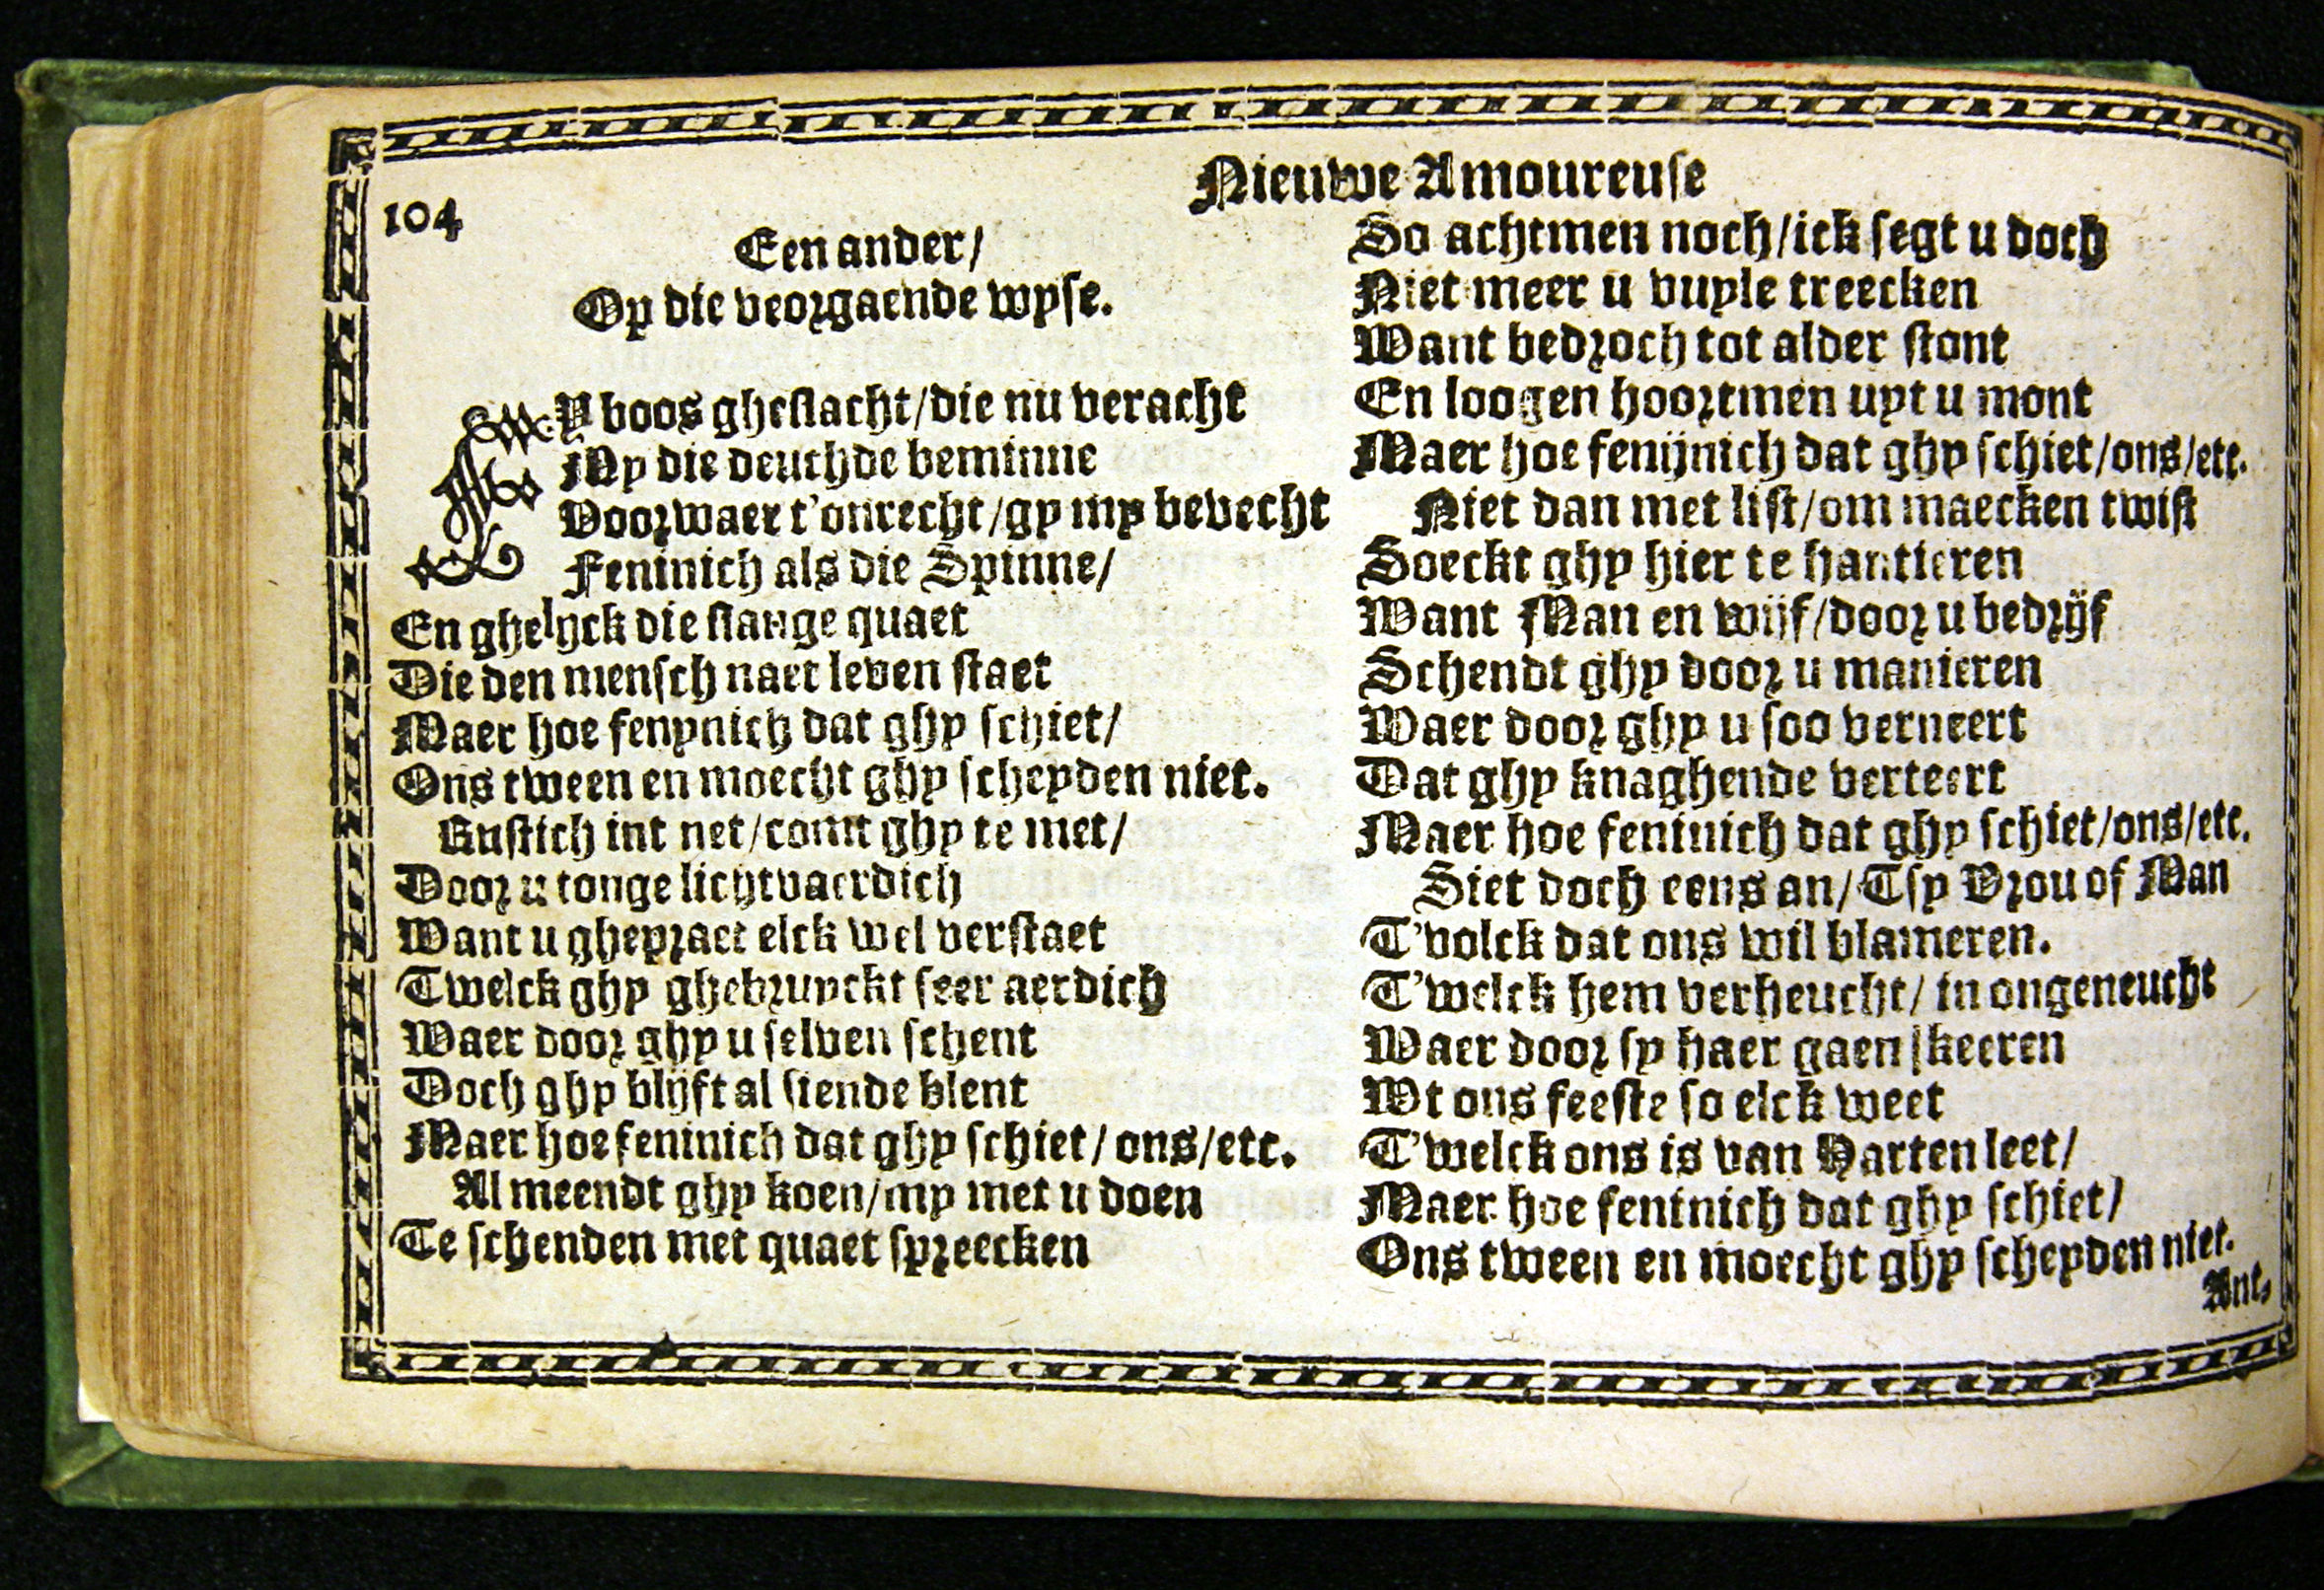 104
Nieuwe Amoureuse
Een ander/
Op die veorgaende wyse.
Y boos gheslacht/die nu veracht
My die deuchde beminne
Voorwaer t'onrecht/gy my bevecht
Feninich als die Spinne/
En ghelyck die slange quaet
Die den mensch naet leven staet
Maer hoe fenynich dat ghy schiet/
Ons tween en moecht ghy scheyden niet.
Gustich int net/comt ghy te met/
Door u tonge lichtvaerdich
Want u ghepraet elck wel verstaet
Twelck ghy ghebruyckt seer aerdich
Waer door ghy u selven schent
Doch ghy blijft al siende blent
Maer hoe feninich dat ghy schiet/ons/etc.
Al meendt ghy koen/my met u doen
Te schenden met quaet spreecken
So achtmen noch/ick segt u doch
Niet meer u vuyle treecken
Want bedroch tot alder stont
En loogen hoortmen uyt u mont
Maer hoe fenijnich dat ghy schiet/ons/etc.
Niet dan met list/om maecken twist
Soeckt ghy hier te hantieren
Want Man en wijf/door u bedrijf
Schendt ghy door u manieren
Waer door ghy u soo verneert
Dat ghy knaghende verteert
Maer hoe feninich dat ghy schiet/ons/etc.
Siet doch eens an/Tsy Vrou of Man
T'volck dat ons wil blameren.
T'welck hem verheucht/in ongeneucht
Waer door sy haer gaen keeren
Wt ons feeste so elck weet
T'welck ons is van Harten leet/
Maer hoe feninich dat ghy schiet/
Ons tween en moecht ghy scheyden niet.
Ant.